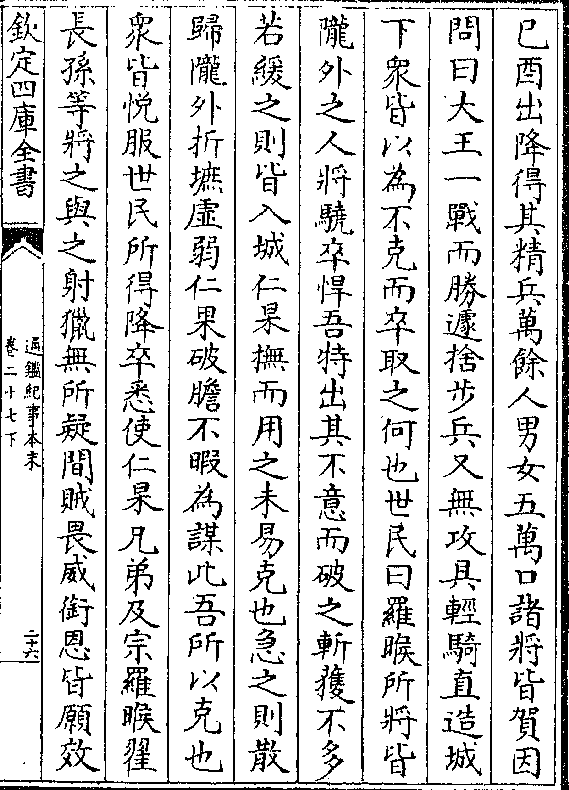 已酉出降得其精兵萬餘人男女五萬口諸將皆賀因
問曰大王一戰而勝遽捨步兵又無攻具輕騎直造城
下衆皆以為不克而卒取之何也世民曰羅睺所將皆
隴外之人將驍卒悍吾特出其不意而破之斬獲不多
若緩之則皆入城仁杲撫而用之未易克也急之則散
歸隴外折墌虚弱仁果破膽不暇為謀此吾所以克也
衆皆悦服世民所得降卒悉使仁杲兄弟及宗羅睺翟
長孫等將之與之射獵無所疑間賊畏威銜恩皆願效
欽定四庫全書
通鑑紀事本末
卷二十七下
二十六